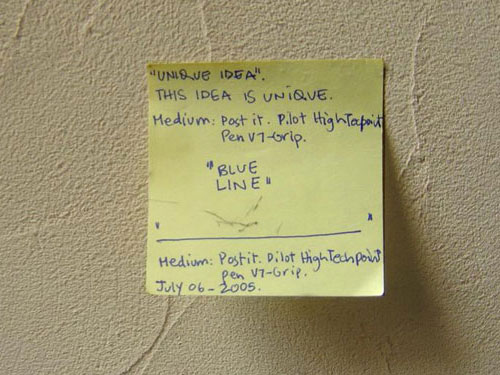 "UNIQUE IDEA".
THIS IDEA IS UNIQUE.
Medium: Post it. Pilot HighTecpoint
Pen V7-Grip.
"BLUE
LINE"
" "
Medium: Post it. Pilot HighTechpoint
Pen V7-Grip.
July 06-2005.